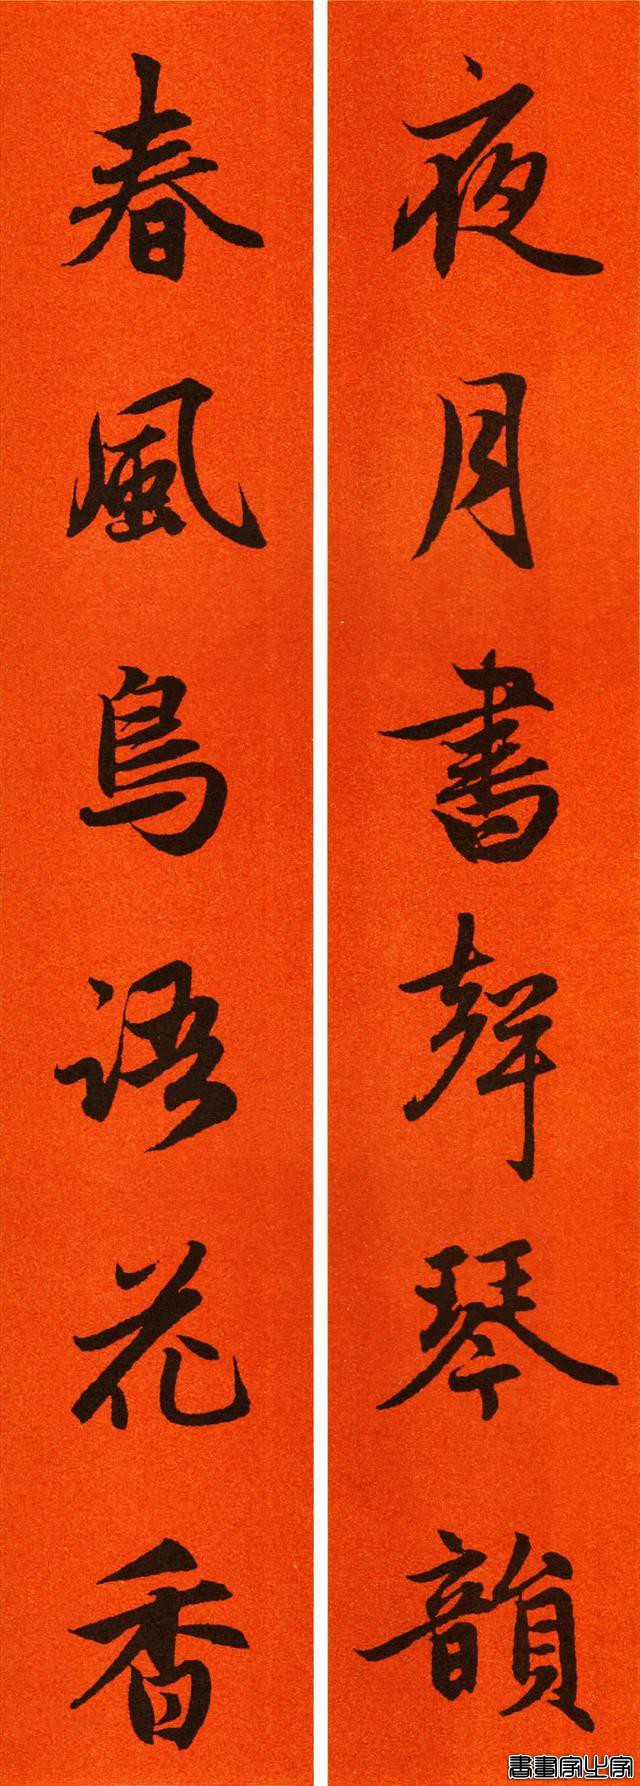 夜月書聲琴韻
春風鳥語花香
書畫家之家